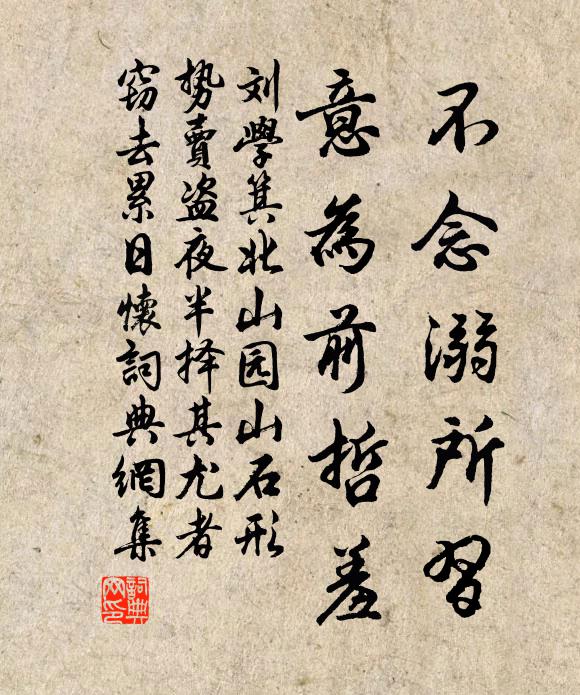 不念溺所習
意為前哲羞
刘學箕北山园山石形
势賣盗夜半择其尤者
窃去累日懷詞典網集
詞典网印